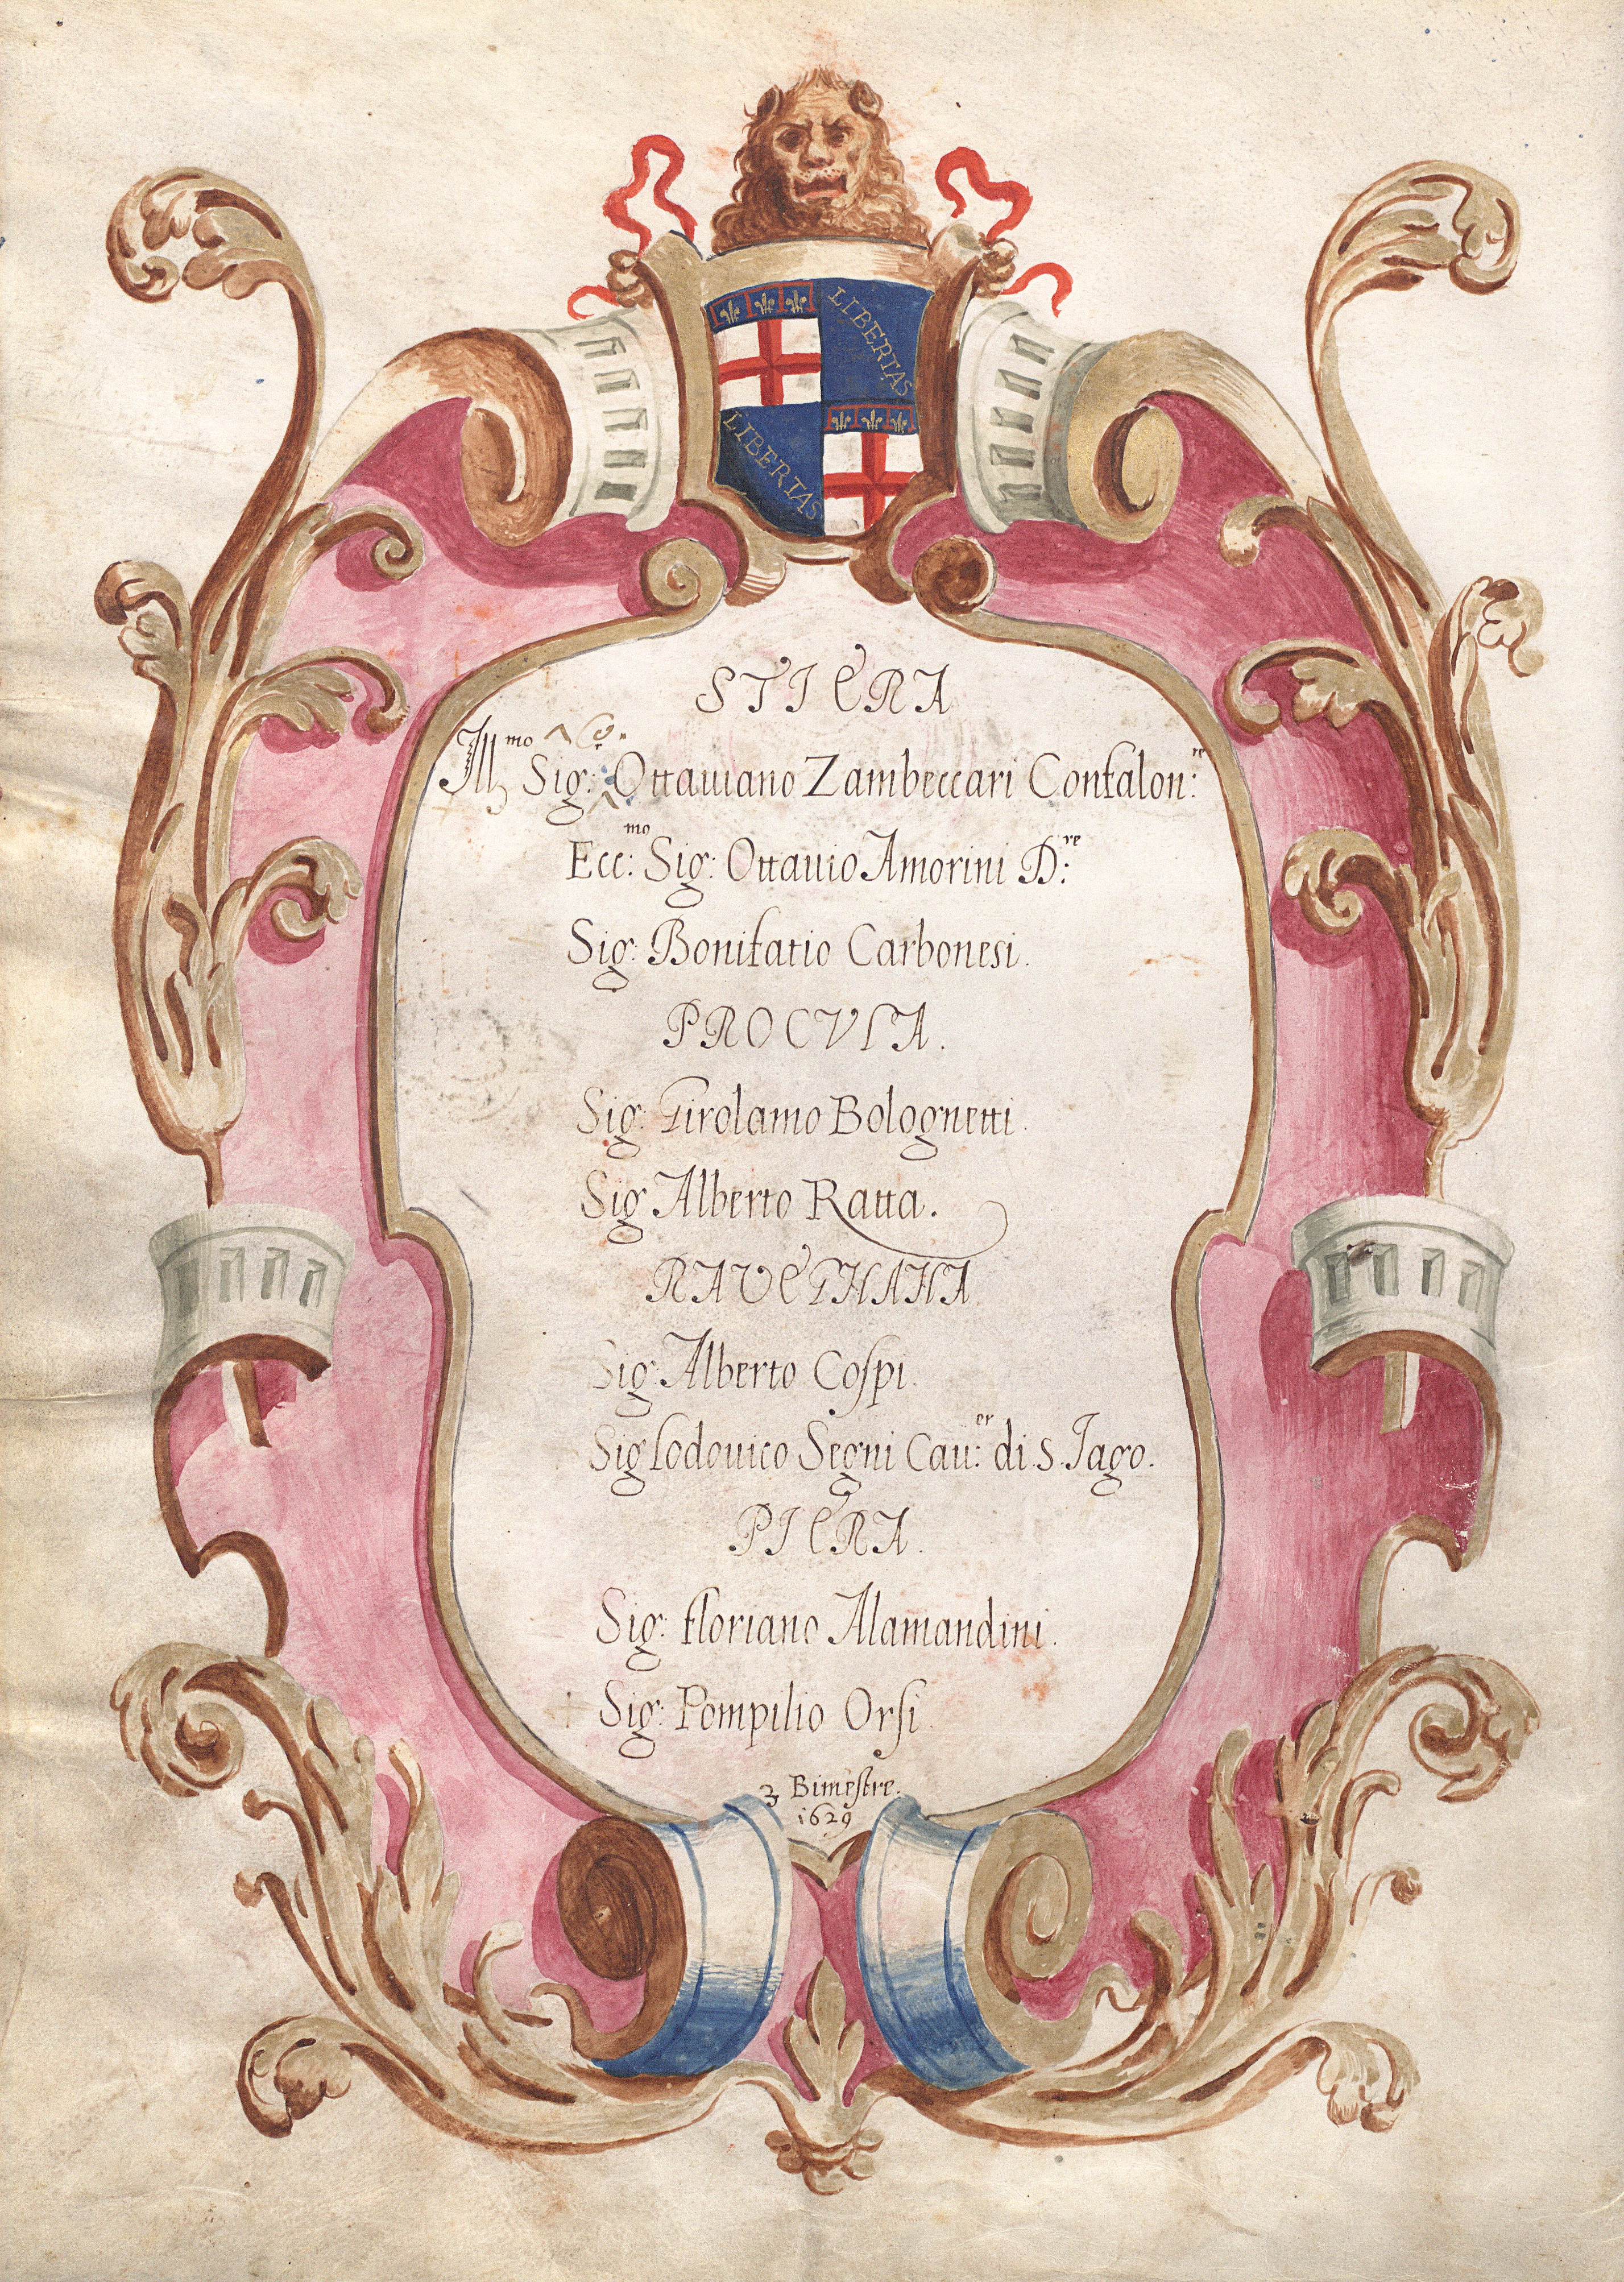 LIBERTAS
LIBERTAS
STIERA
Ill.mo Sig: Co: Ottauiano Zambeccari Confalon:re
Ecc:mo Sig: Ottauio Amorini D:re
Sig: Bonifatio Carbonesi.
PROCVLA.
Sig: Girolamo Bolognetti.
Sig. Alberto Ratta.
RAVEGNANA
Sig. Alberto Coſpi.
Sig Lodouico Segni Cau:er di S. Jago.
PIERA.
Sig: Floriano Alamandini.
Sig: Pompilio Orſi.
3 Bimeſtre.
1629